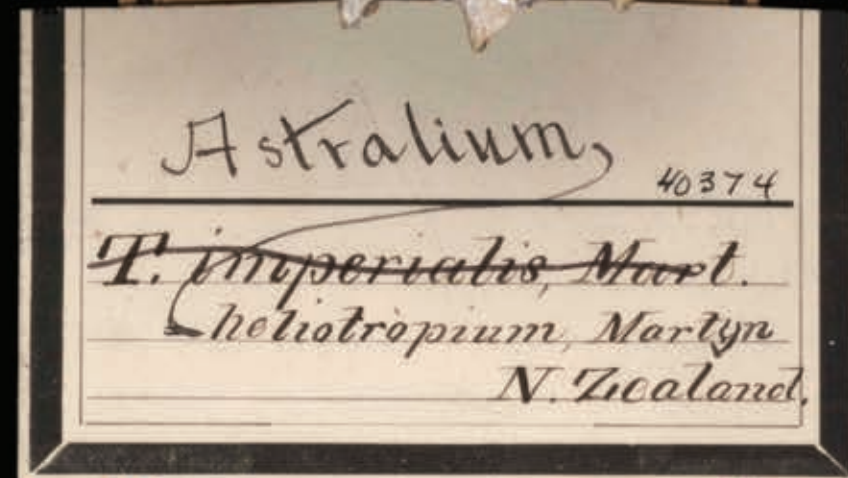 Astralium,
40374
T. imperialis, Mart.
heliotropium, Martyn
N. Zealand.